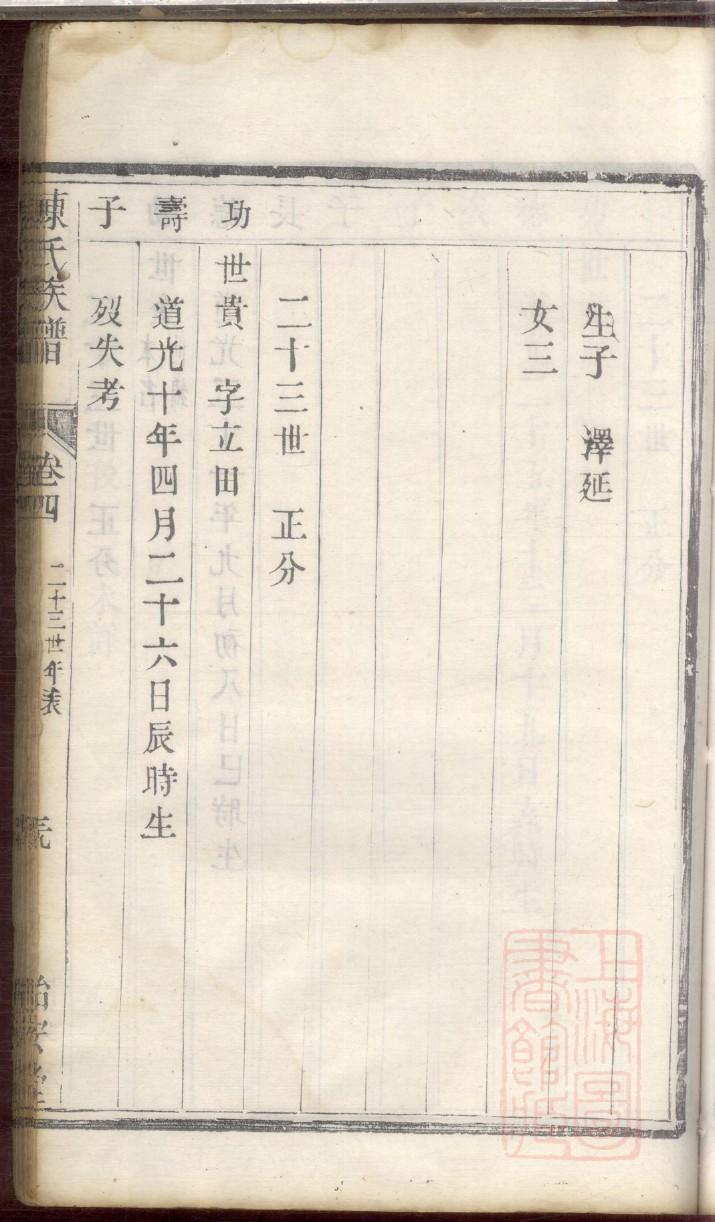 生子 澤延
女三
二十三世 正分
功 世貴 字立田
壽 道光十年四月二十六日辰時生
子 歿失考
陳氏族譜 卷四 二十三世年表
上海圖書館藏